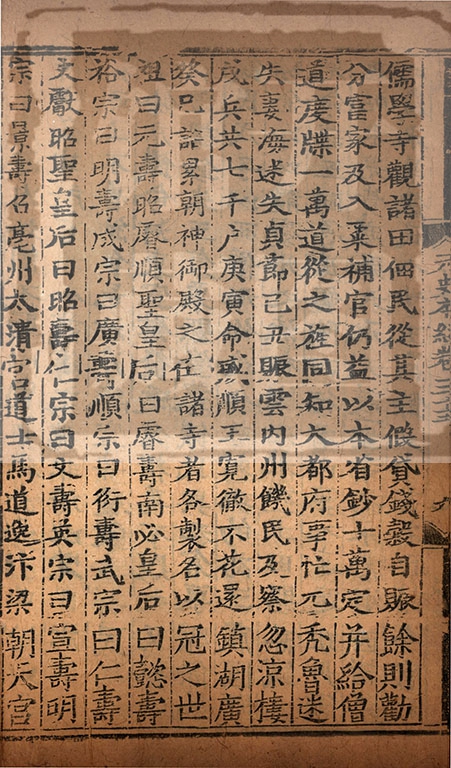 元史本紀卷三十五
九
儒學寺觀諸田佃民從其主假貸錢穀自賑餘則勸
分富家及入粟補官仍益以本省鈔十萬定并給僧
道度牒一萬道從之旌同知大都府事忙兀禿魯迷
失妻海迷失貞節己丑賑雲內州饑民及察忽涼樓
戍兵共七千戶庚寅命威順王寬徹不花還鎮湖廣
癸巳詔累朝神御殿之在諸寺者各製名以冠之世
祖曰元壽昭睿順聖皇后曰睿壽南必皇后曰懿壽
裕宗曰明壽成宗曰廣壽順宗曰衍壽武宗曰仁壽
文獻昭聖皇后曰昭壽仁宗曰文壽英宗曰宣壽明
宗曰景壽召亳州太清宮道士馬道逸汴梁朝天宮